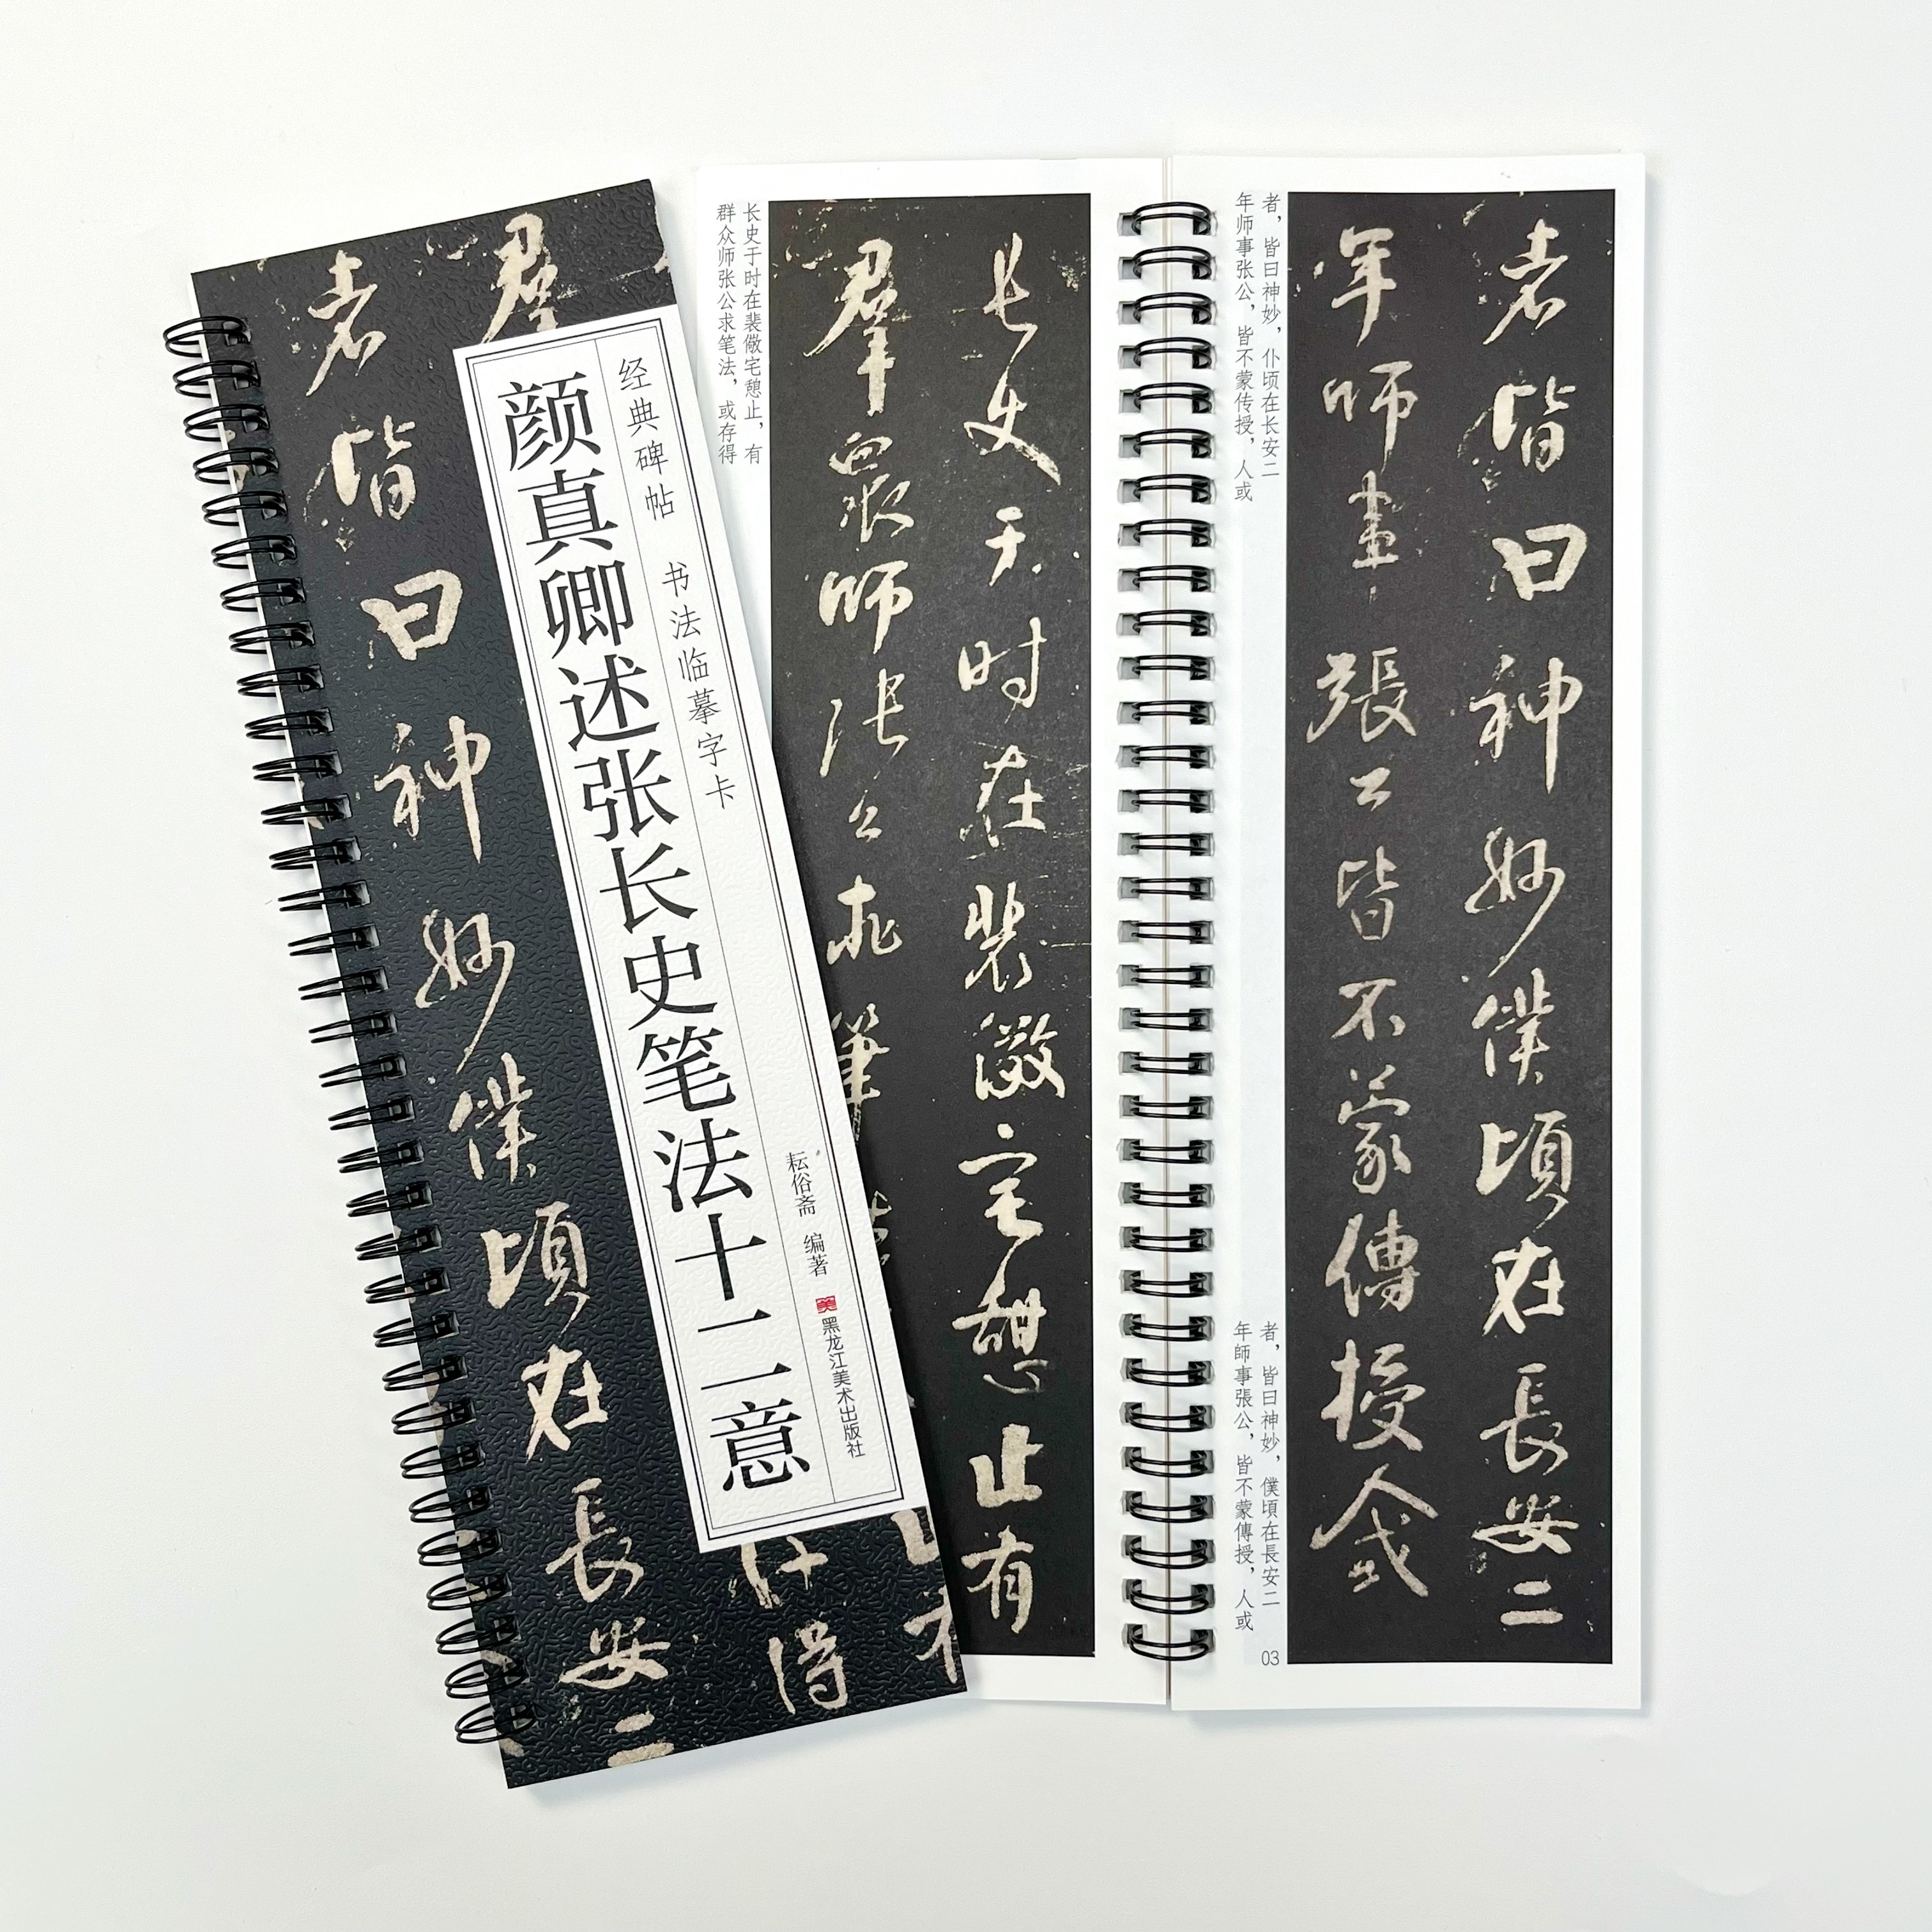 经典碑帖 书法临摹字卡
颜真卿述张长史笔法十二意
耘俗斋 编著
黑龙江美术出版社
羣
者皆曰神妙僕頃在長安二
得
长史于时在裴儆宅憩止，有
群众师张公求笔法，或存得
長史于时在裴儆宅憩止有
羣眾師張公求筆
者，皆曰神妙，仆顷在长安二
年师事张公，皆不蒙传授，人或
者皆曰神妙僕頃在長安二
年師事張公皆不蒙傳授人或
者，皆曰神妙，僕頃在長安二
年師事張公，皆不蒙傳授，人或
03